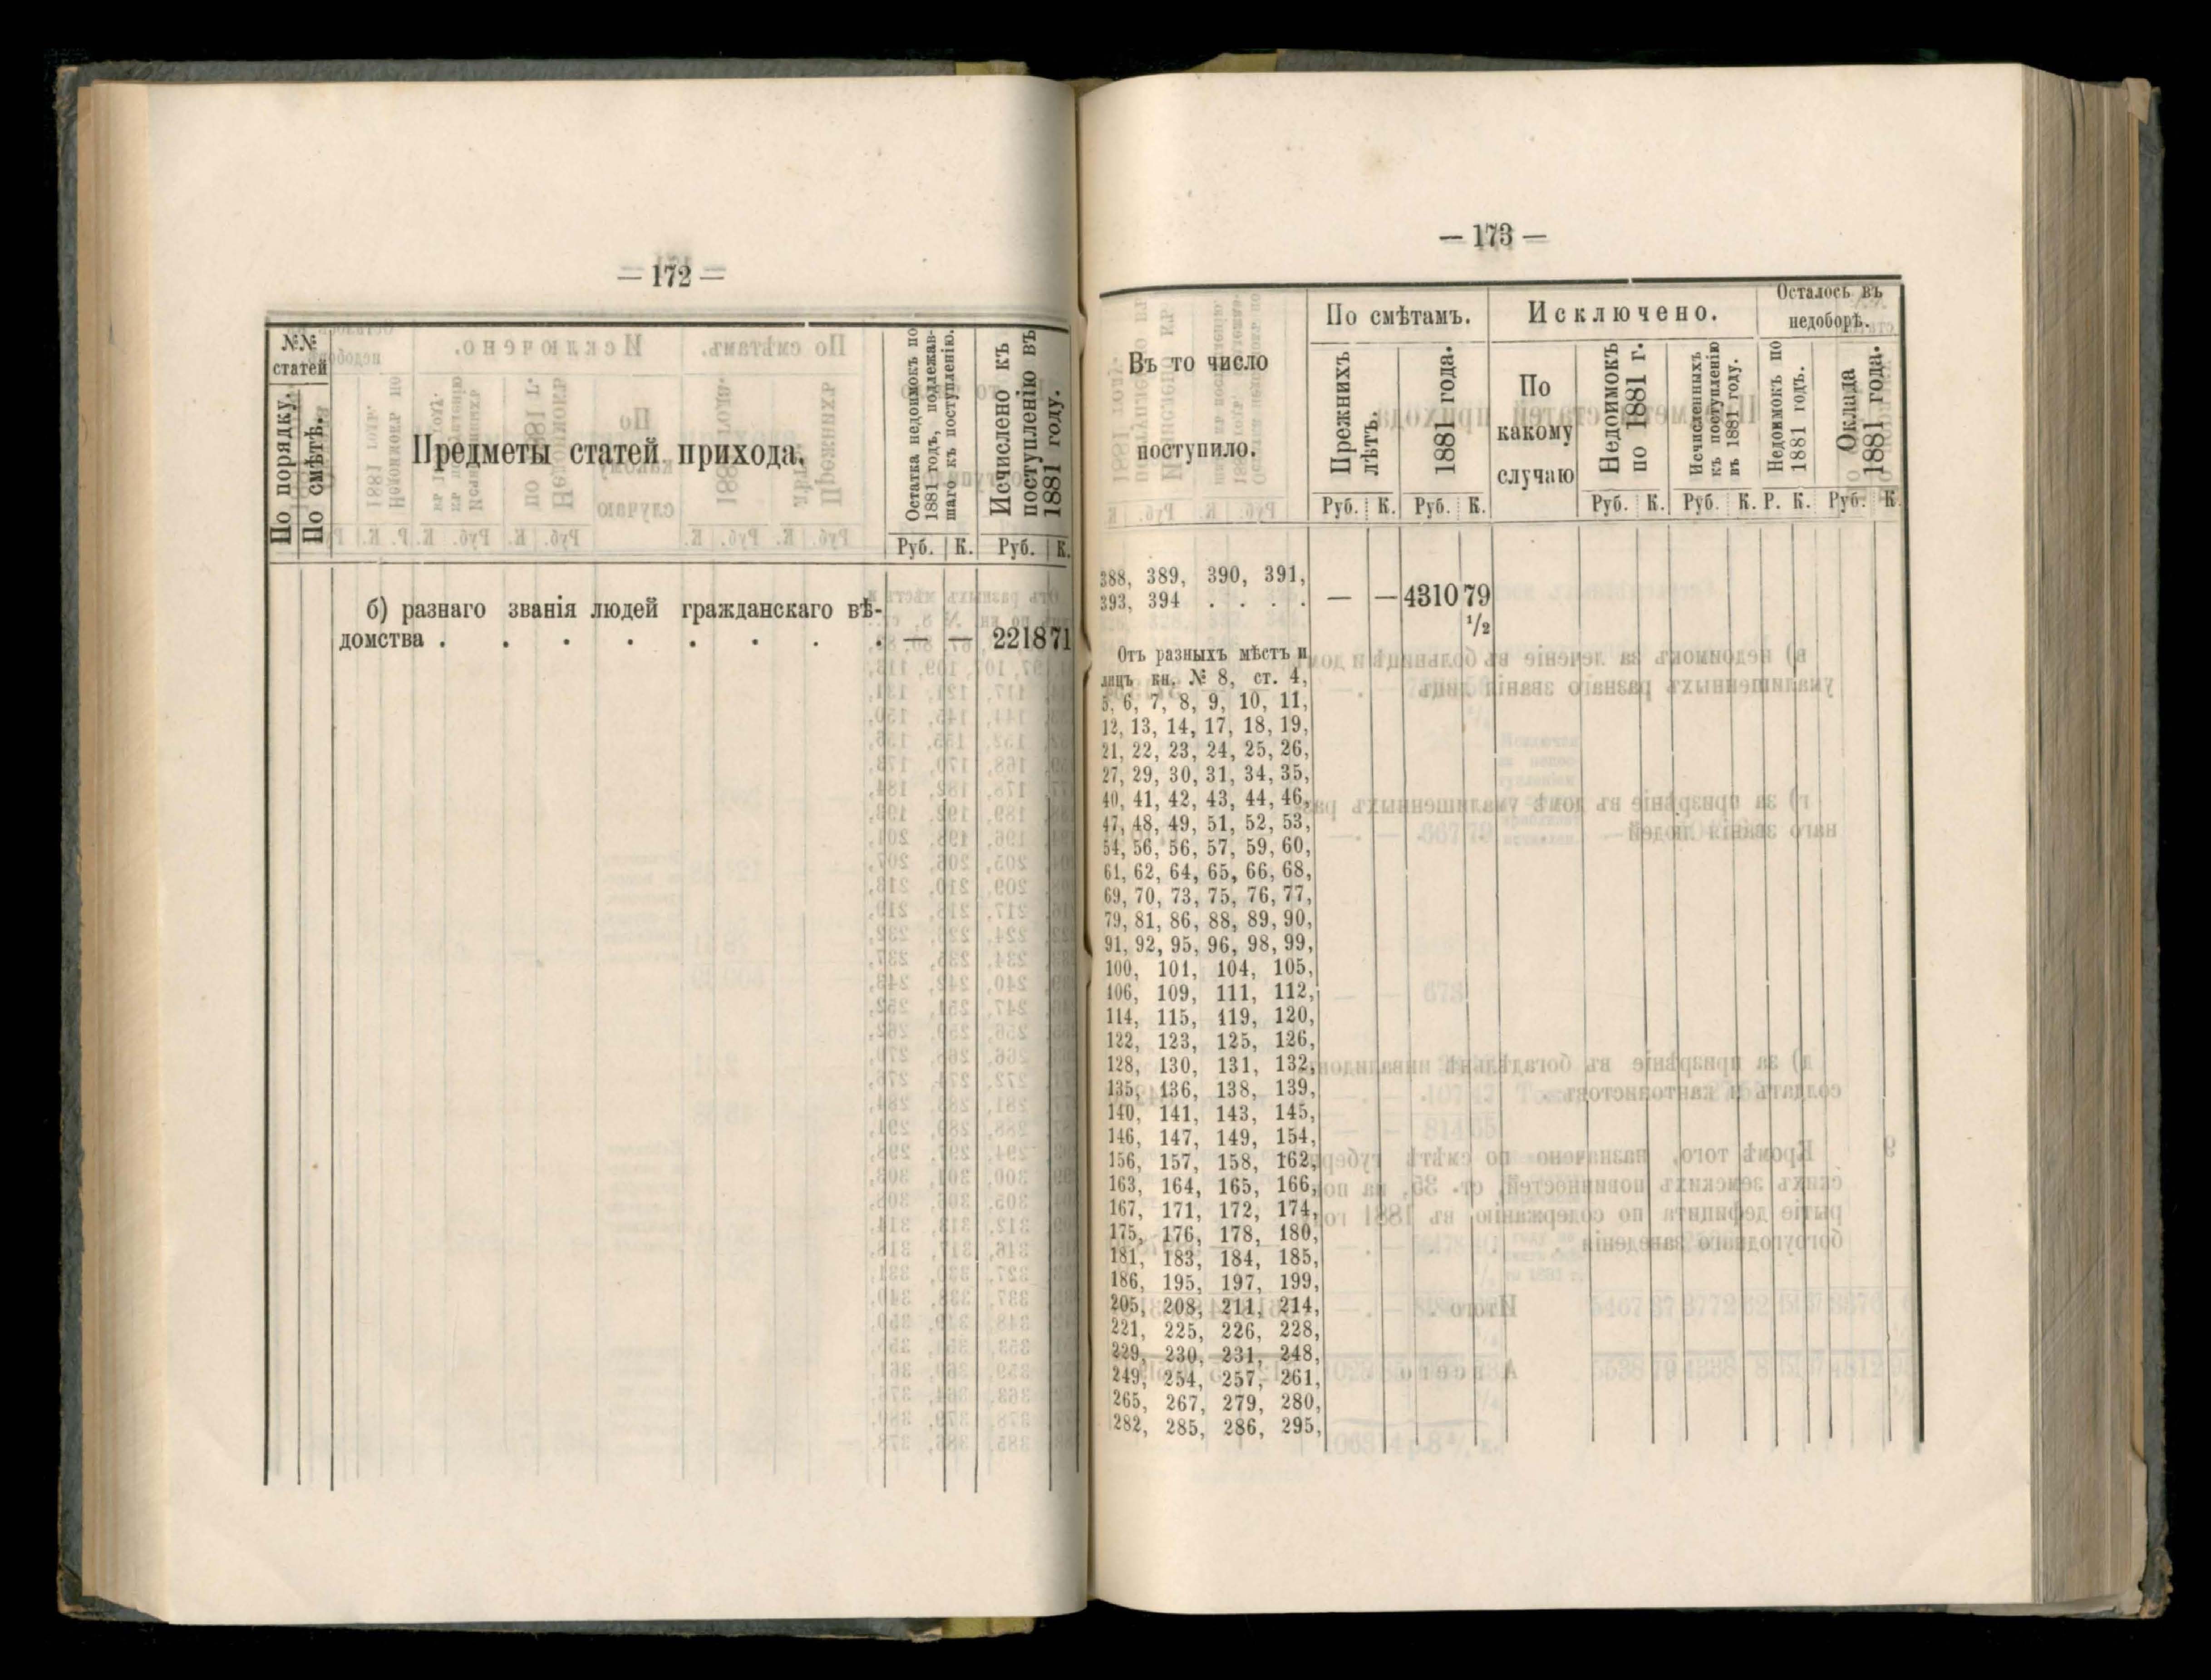 — 172 —
№№
статей
По порядку.
По смѣтѣ.
Предметы статей прихода.
Остатка недоимокъ по
1881 годъ, подлежав-
шаго къ поступленію.
Исчислено къ
поступленію въ
1881 году.
Руб. К. Руб. К.
б) разнаго званія людей гражданскаго вѣ-
домства . . . . . . . . — — 2218 71
— 173 —
Въ то число
поступило.
По смѣтамъ.
Прежнихъ
лѣтъ.
1881 года.
Исключено.
По
какому
случаю
Недоимокъ
по 1881 г.
Исчисленныхъ
къ поступленію
въ 1881 году.
Осталось въ
недоборѣ.
Недоимокъ по
1881 годъ.
Оклада
1881 года.
Руб. К. Руб. К. Руб. К. Руб. К. Р. К. Руб. К.
388, 389, 390, 391,
393, 394 . . . . — — 4310 79
1/2
Отъ разныхъ мѣстъ и
лицъ кн. № 8, ст. 4,
5, 6, 7, 8, 9, 10, 11,
12, 13, 14, 17, 18, 19,
21, 22, 23, 24, 25, 26,
27, 29, 30, 31, 34, 35,
40, 41, 42, 43, 44, 46,
47, 48, 49, 51, 52, 53,
54, 56, 56, 57, 59, 60,
61, 62, 64, 65, 66, 68,
69, 70, 73, 75, 76, 77,
79, 81, 86, 88, 89, 90,
91, 92, 95, 96, 98, 99,
100, 101, 104, 105,
106, 109, 111, 112,
114, 115, 119, 120,
122, 123, 125, 126,
128, 130, 131, 132,
135, 136, 138, 139,
140, 141, 143, 145,
146, 147, 149, 154,
156, 157, 158, 162,
163, 164, 165, 166,
167, 171, 172, 174,
175, 176, 178, 180,
181, 183, 184, 185,
186, 195, 197, 199,
205, 208, 211, 214,
221, 225, 226, 228,
229, 230, 231, 248,
249, 254, 257, 261,
265, 267, 279, 280,
282, 285, 286, 295,